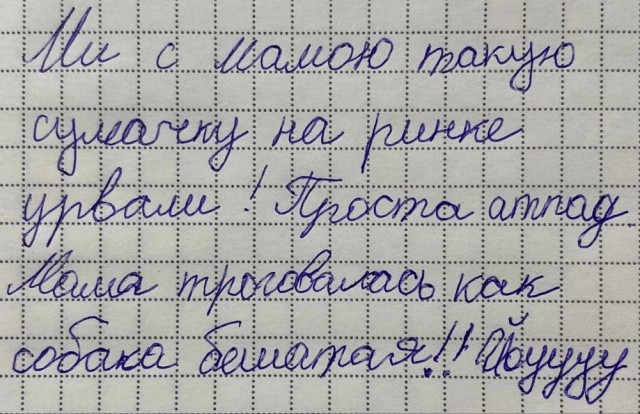 Ми с мамою такую
сумачку на ринке
урвали! Проста атпад.
Мама трговалась как
собака бешатая!! Йоуууу